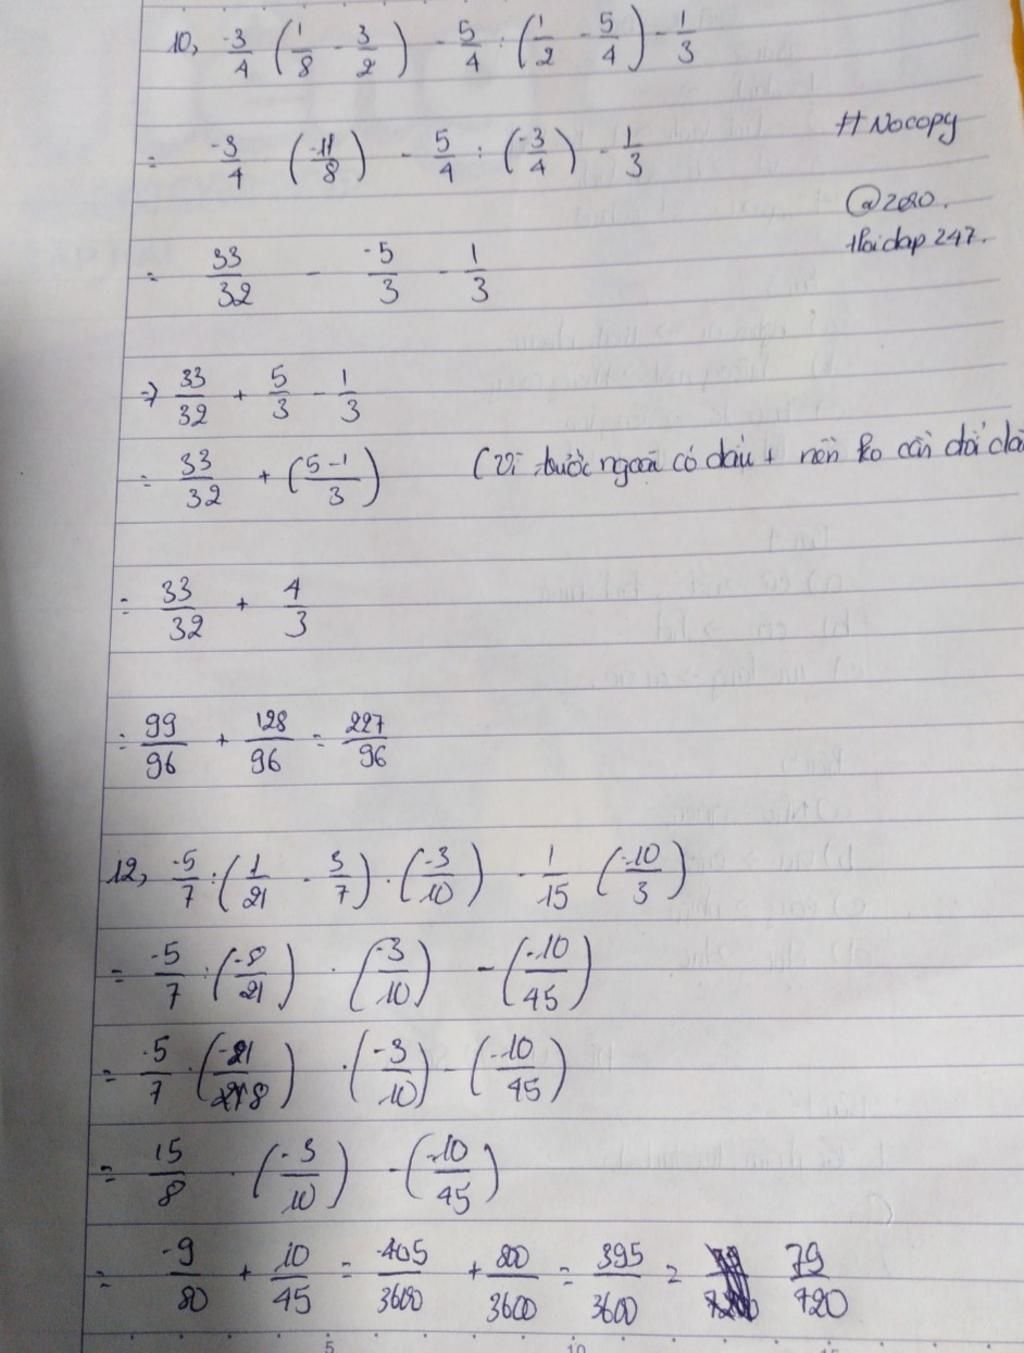 10, -3/4 (1/8 - 3/2) - 5/4 : (1/2 - 5/4) - 1/3
= -3/4 (-11/8) - 5/4 : (-3/4) - 1/3
# Nocopy
= 33/32 - -5/3 - 1/3
@2080.
Hoidap 247.
=> 33/32 + 5/3 - 1/3
= 33/32 + (5-1/3) (Vì trước ngoặc có dấu + nên ko cần đổi dấ
= 33/32 + 4/3
= 99/96 + 128/96 = 227/96
12, -5/7 : (1/21 - 3/7) . (-3/10) - 1/15 (-10/3)
= -5/7 : (-8/21) . (-3/10) - (-10/45)
= -5/7 . (-21/8) . (-3/10) - (-10/45)
= 15/8 . (-3/10) - (-10/45)
= -9/80 + 10/45 = -405/3600 + 800/3600 = 395/3600 = 79/720
5 10